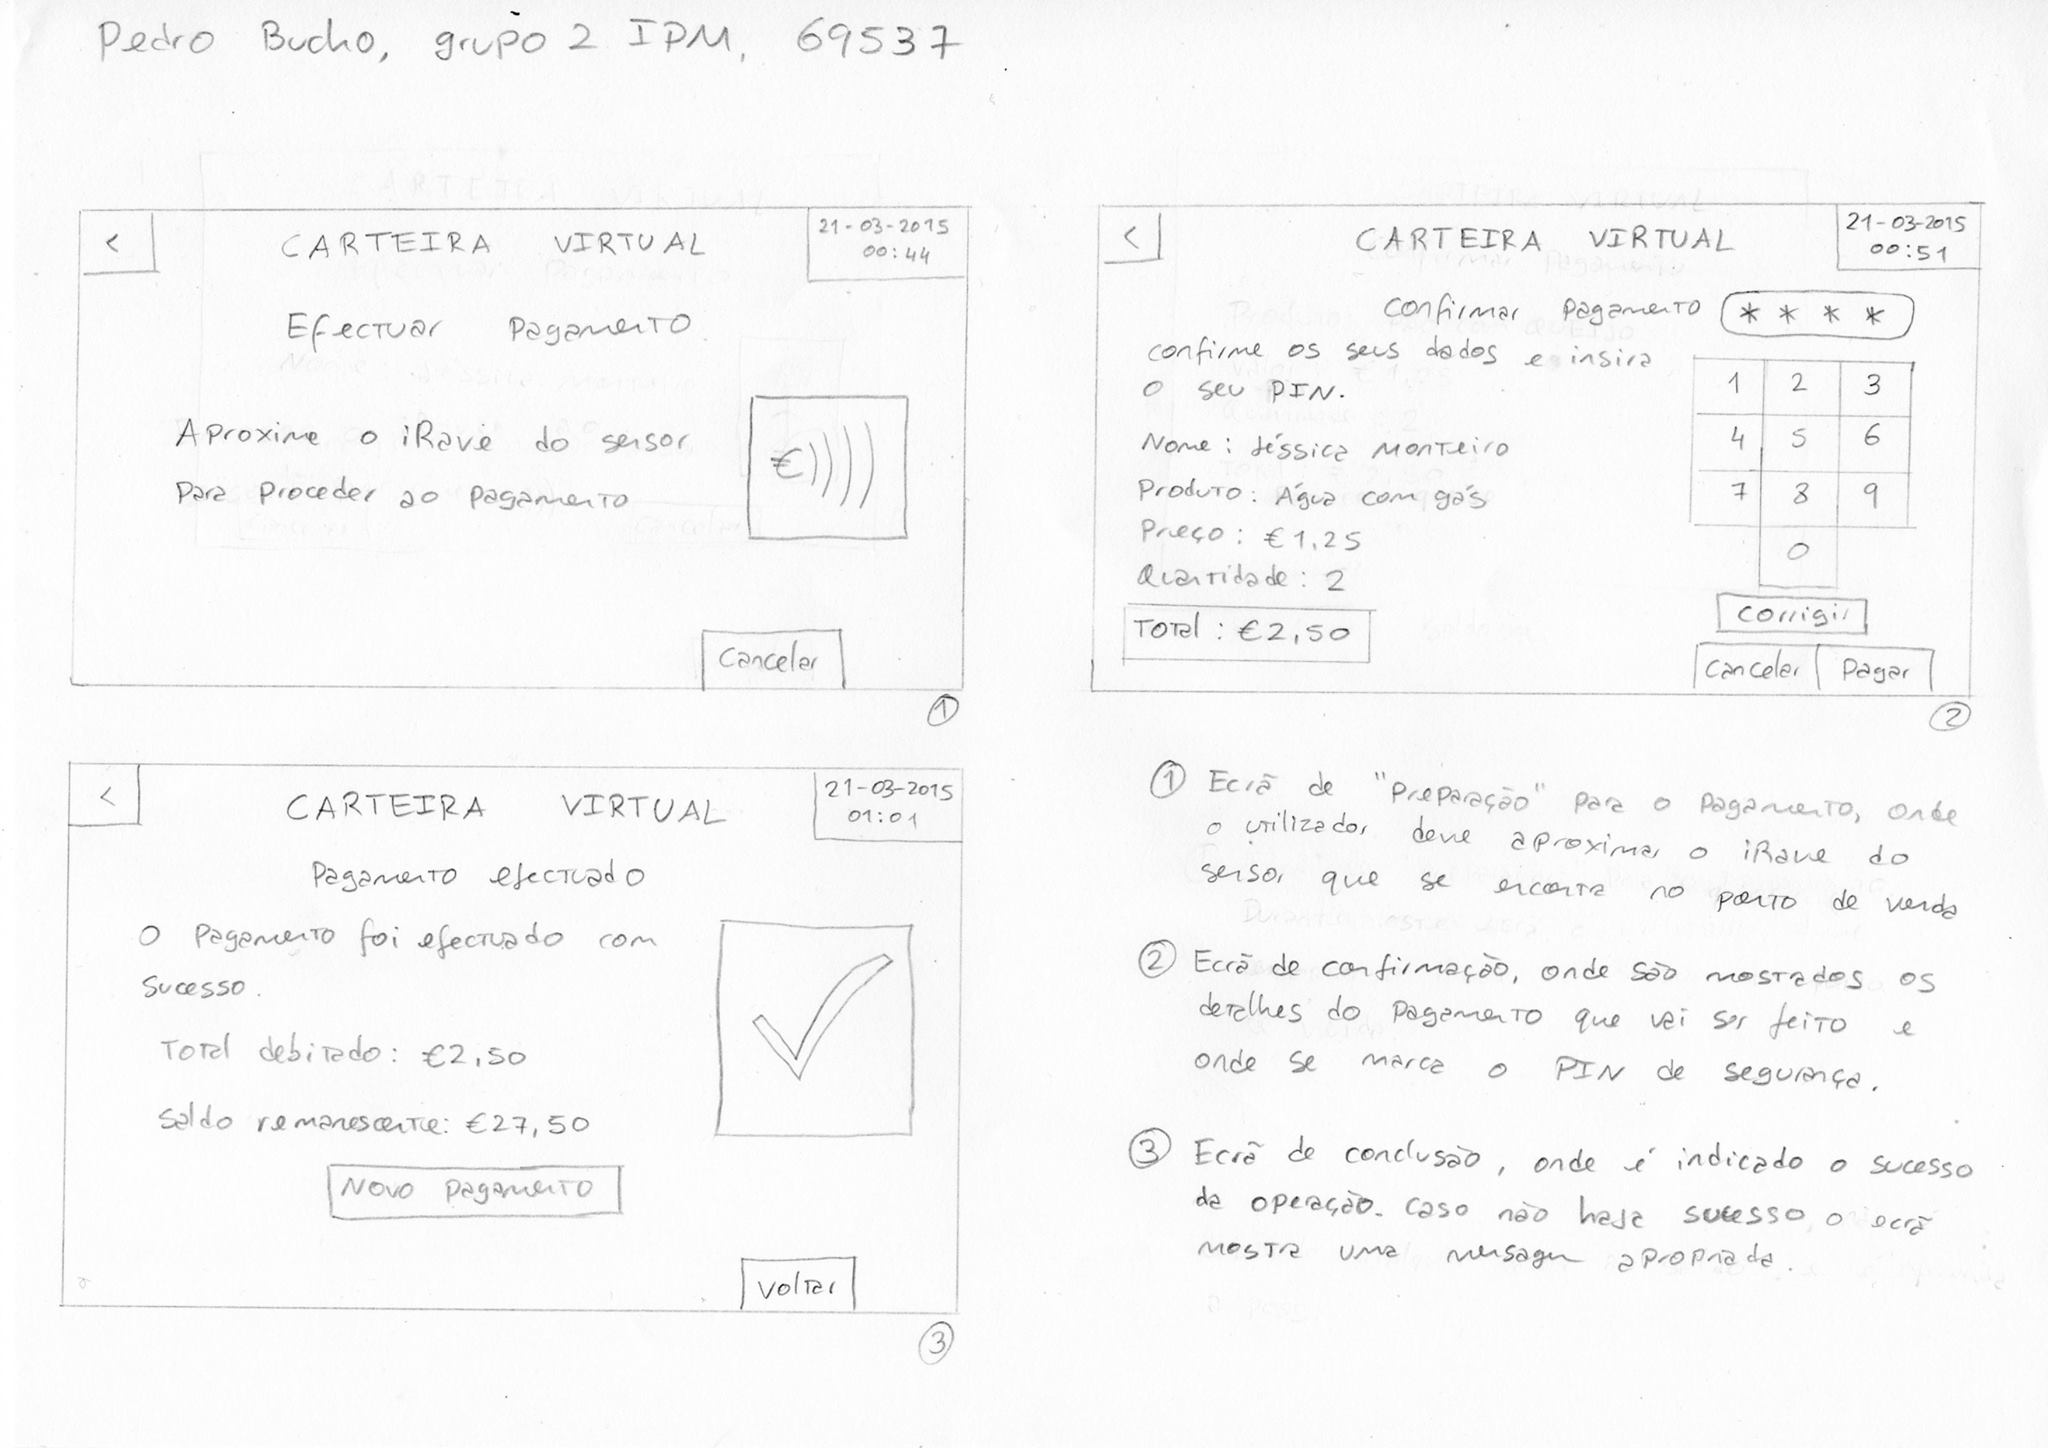 Pedro Bucho, grupo 2 IPM, 69537
<
CARTEIRA VIRTUAL
21-03-2015
00:44
Efectuar pagamento
Aproxime o iRave do sensor
para proceder ao pagamento
€))))
Cancelar
1
<
CARTEIRA VIRTUAL
21-03-2015
00:51
Confirmar pagamento
* * * *
Confirme os seus dados e insira
o seu PIN.
Nome: Jéssica Monteiro
Produto: Água com gás
Preço: €1,25
Quantidade: 2
Total: €2,50
1 2 3
4 5 6
7 8 9
0
Corrigir
Cancelar Pagar
2
<
CARTEIRA VIRTUAL
21-03-2015
01:01
Pagamento efectuado
O pagamento foi efectuado com
sucesso.
Total debitado: €2,50
Saldo remanescente: €27,50
Novo pagamento
Voltar
3
1 Ecrã de "preparação" para o pagamento, onde
o utilizador deve aproximar o iRave do
sensor que se encontra no ponto de venda
2 Ecrã de confirmação, onde são mostrados os
detalhes do pagamento que vai ser feito e
onde se marca o PIN de segurança.
3 Ecrã de conclusão, onde é indicado o sucesso
da operação. Caso não haja sucesso, o ecrã
mostra uma mensagem apropriada.